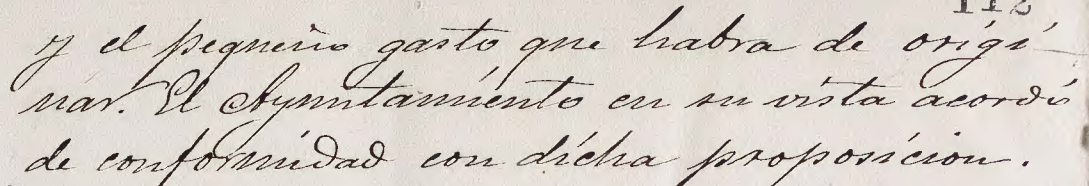 112
y el pequeño gasto que habra de origi-
nar. El Ayuntamiento en su vista acordó
de conformidad con dicha proposicion.